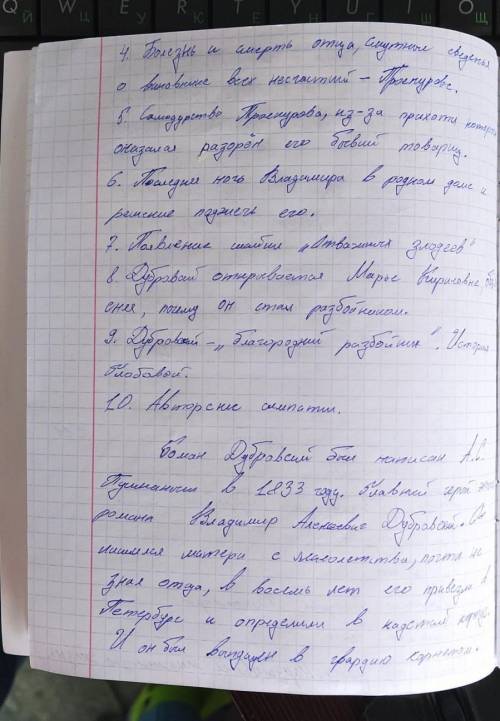 4. Болезнь и смерть отца, смутные сведения
о виновнике всех несчастий – Троекурове.
5. Самодурство Троекурова, из-за прихоти которого
оказался разорён его бывший товарищ.
6. Последняя ночь Владимира в родном доме и
решение поджечь его.
7. Появление шайки „Отважных злодеев"
8. Дубровский открывается Марье Кириловне,
почему он стал разбойником.
9. Дубровский – „благородный разбойник". История
Глобовой.
10. Авторские симпатии.
Роман Дубровский был написан А.С.
Пушкиным в 1833 году. Главный герой этого
романа Владимир Алексеевич Дубровский. Он
лишился матери с малолетства, почти не
зная отца, в восемь лет его привезли в
Петербург и определили в кадетский корпус.
И он был выпущен в гвардию корнетом.